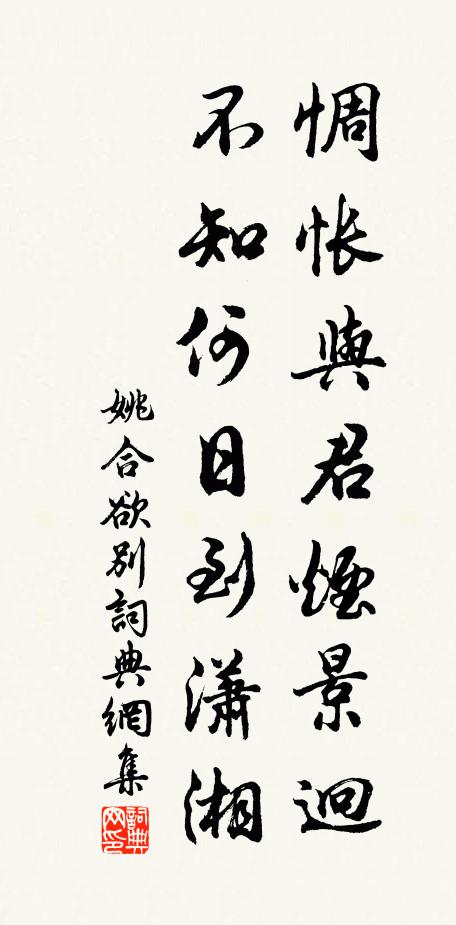 惆悵與君煙景迥
不知何日到瀟湘
姚合欲別詞典網集
詞典网印